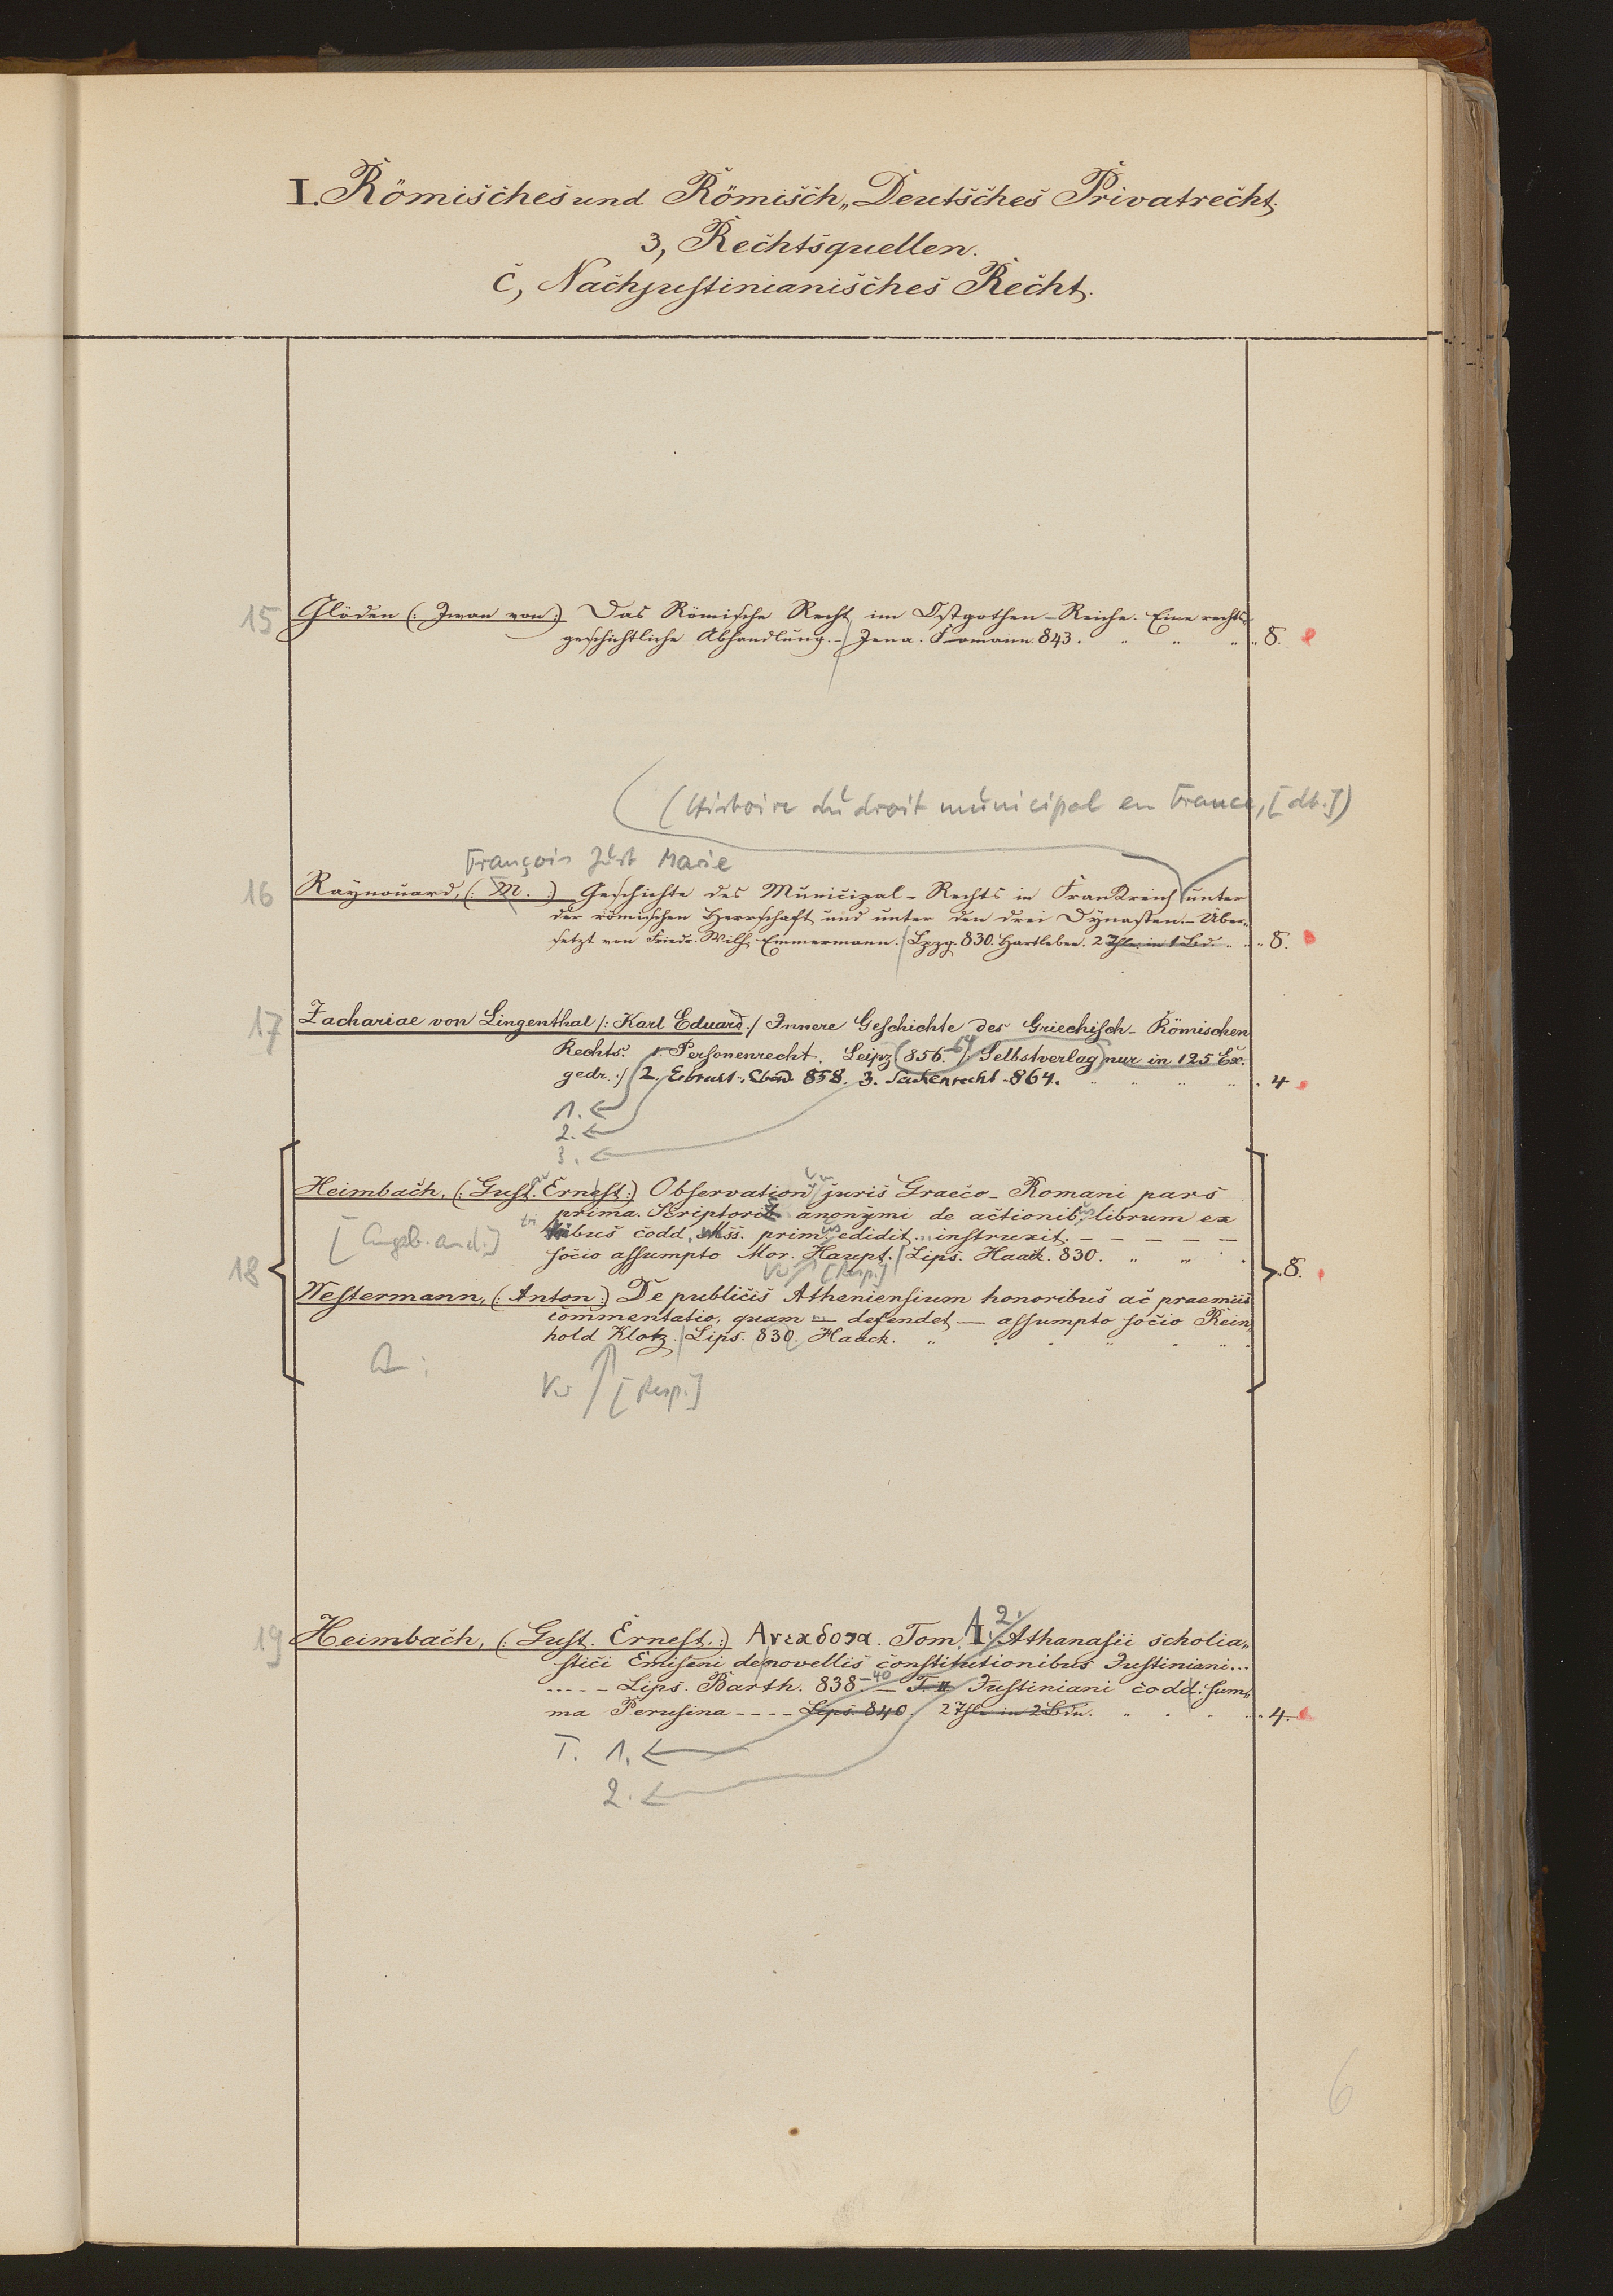 I. Römisches und Römisch„Deutsches Privatrecht.
3, Rechtsquellen.
c, Nachjustinianisches Recht.
15 Glöden (: Iwan von :) Das Römische Recht im Ostgothen-Reiche. Eine rechts-
geschichtliche Abhandlung. – Jena. Fromann. 843. „ „ „ „ 8.
(Histoire du droit municipal en France, [dt.])
François Just Marie
16 Raynouard, (: M. :) Geschichte des Municipal-Rechts in Frankreich unter
der römischen Herrschaft und unter den drei Dynasten. – Über-
setzt von Friedr. Wilh. Emmermann. Lpzg. 830. Hartleben. 2 Thle in 1 Bd. „ „ 8.
17 Zachariae von Lingenthal /: Karl Eduard :/ Innere Geschichte des Griechisch-Römischen
Rechts. 1. Personenrecht. Leipz (856. -64 / Selbstverlag) nur in 125 Ex.
gedr. :/ 2. Erbrecht. Ebend. 858. 3. Sachenrecht -864. „ „ „ „ 4
1. ←
2. ←
3. ←
18 Heimbach, (: Gust. Ernest :) Observation juris Graeco-Romani pars
prima. Scriptoris anonymi de actionib. librum ex
tribus codd. Mss. prim edidit „ instruxit. – – – – –
[Angeb. and.]
socio assumpto Mor. Haupt. Lips. Haack. 830. „ „ . „ 8.
[Resp.]
Westermann, (: Anton :) De publicis Atheniensium honoribus ac praemiis
commentatio, quam — defendet — assumpto socio Rein„
hold Klotz. Lips. 830. Haack. „ . . „ . „ .
[Resp.]
19 Heimbach, (: Gust. Ernest. :) Ανεκδοτα. Tom. I. 2. Athanasii scholia„
stici Emiseni de novellis constitutionibus Justiniani...
..... – Lips. Barth. 838. -40 – T. II Justiniani codd. sum„
ma Perusina - - - - Lips. 840. 2 Thle in 2 Bdn. „ . „ „ 4.
T. 1. ←
2. ←
6